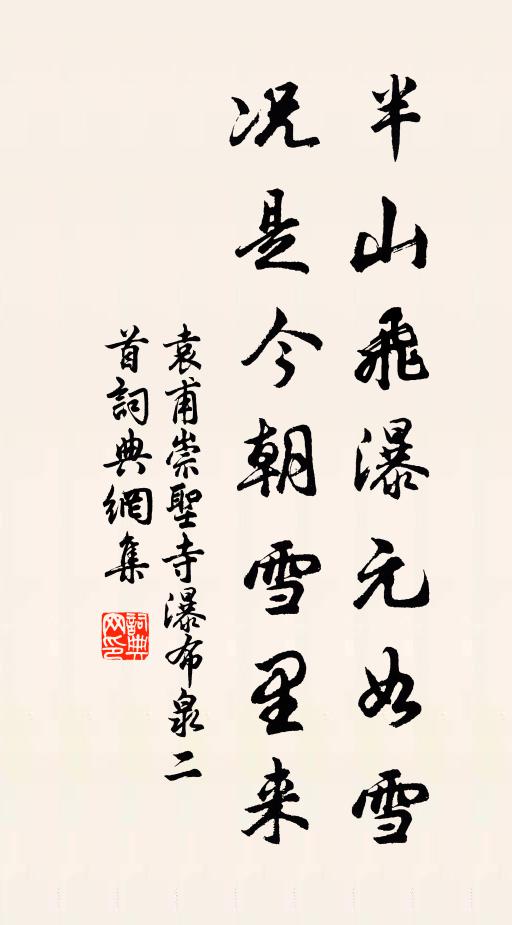 半山飛瀑元如雪
况是今朝雪里来
袁甫崇聖寺瀑布泉二
首詞典網集
詞典网印